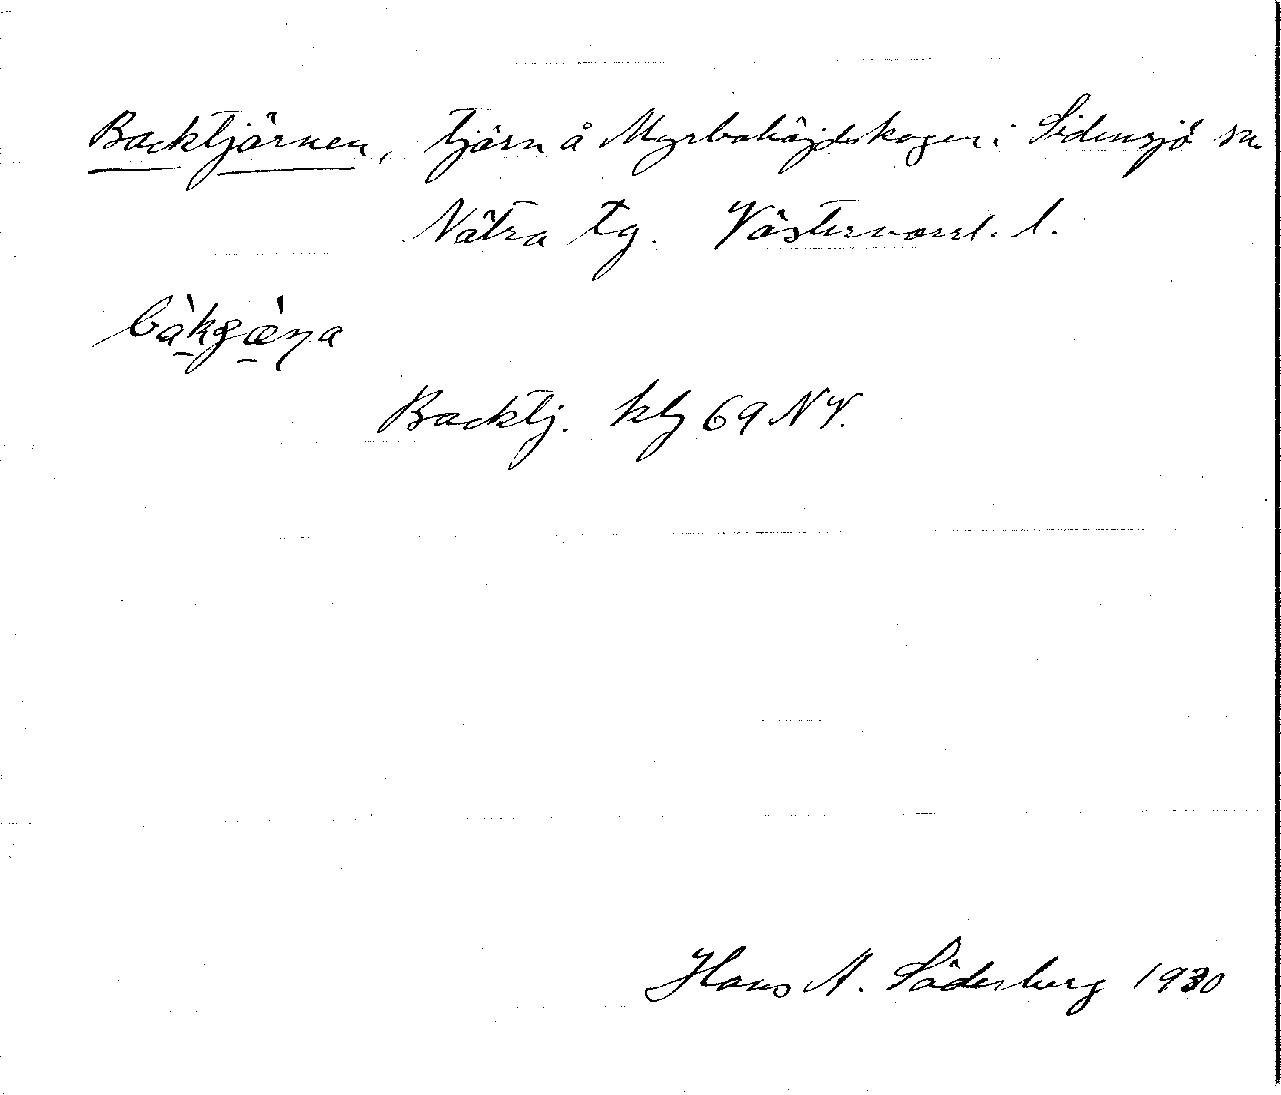 Backtjärnen, tjärn å Myckelhöjdskogen i Sidensjö sn.
Nätra tg. Västernorrl. l.
bàkgæ̀ṇa
Backtj. kbl 69 NV.
Hans A. Söderberg 1930